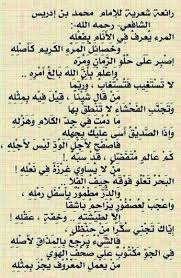 رائعة شعرية للإمام محمد بن إدريس
الشافعي رحمه الله :
المرء يُعرف في الأنام بفعله
وخصائل المرء الكريم كأصله
إصبر على حلو الزمان ومره
واعلم بأن الله بالغ أمره
لا تستغيب فتستغاب ، وربما
من قال شيئا ، قيل فيه بمثله
وتجنب الفحشاء لا تنطق بها
ما دمت في جد الكلام وهزله
وإذا الصديق أسى عليك بجهله
فاصفح لأجل الود ليس لأجله
كم عالم متفضل ، قد سبه
من لا يساوي غرزة في نعله !
البحر تعلو فوقه جيف الفلا
والدر مطمور بأسفل رمله
واعجب لعصفور يزاحم باشقا
إلا لطيشته .. وخفة .. عقله !
إياك تجني سكرا من حنظل
فالشيء يرجع بالمذاق لأصله
في الجو مكتوب على صحف الهوى
من يعمل المعروف يجز بمثله